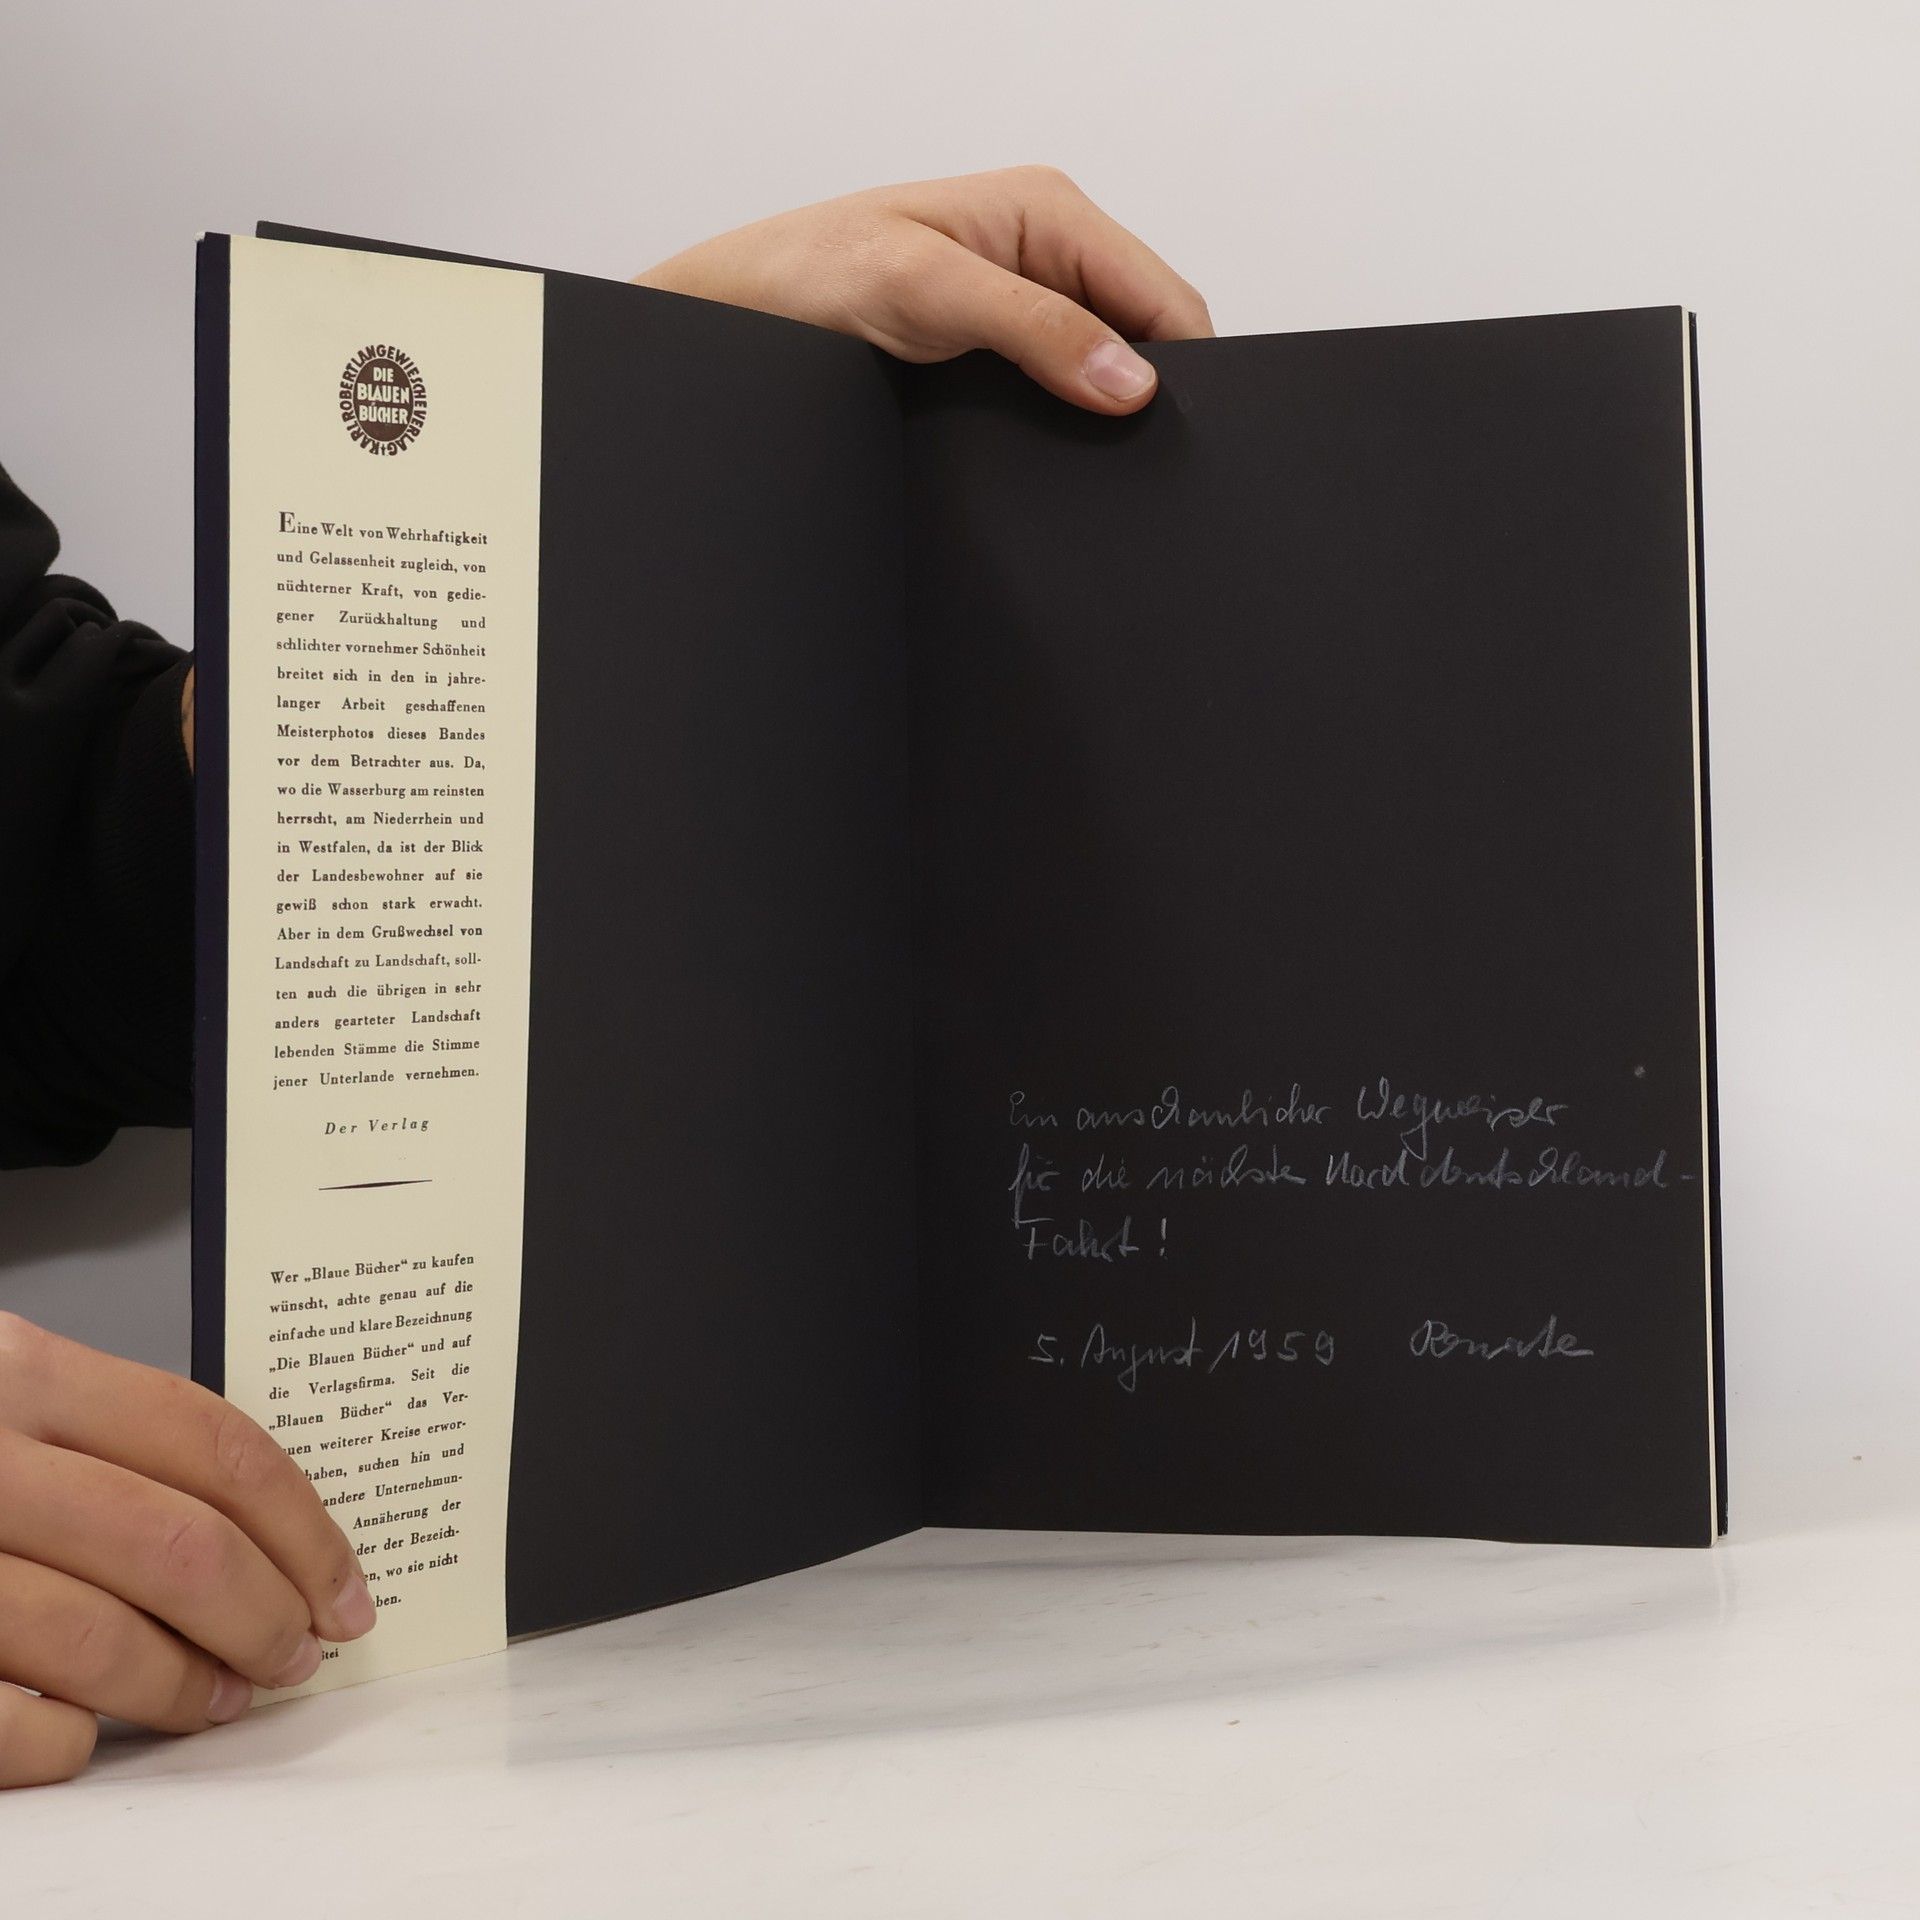 KARL ROBERT LANGEWIESCHE VERLAG
DIE
BLAUEN
BÜCHER
Eine Welt von Wehrhaftigkeit
und Gelassenheit zugleich, von
nüchterner Kraft, von gedie-
gener Zurückhaltung und
schlichter vornehmer Schönheit
breitet sich in den in jahre-
langer Arbeit geschaffenen
Meisterphotos dieses Bandes
vor dem Betrachter aus. Da,
wo die Wasserburg am reinsten
herrscht, am Niederrhein und
in Westfalen, da ist der Blick
der Landesbewohner auf sie
gewiß schon stark erwacht.
Aber in dem Grußwechsel von
Landschaft zu Landschaft, soll-
ten auch die übrigen in sehr
anders gearteter Landschaft
lebenden Stämme die Stimme
jener Unterlande vernehmen.
Der Verlag
Wer „Blaue Bücher“ zu kaufen
wünscht, achte genau auf die
einfache und klare Bezeichnung
„Die Blauen Bücher“ und auf
die Verlagsfirma. Seit die
„Blauen Bücher“ das Ver-
auen weiterer Kreise erwor-
haben, suchen hin und
andere Unternehmun-
Annäherung der
der der Bezeich-
en, wo sie nicht
ben.
Ein anschaulicher Wegweiser
für die nächste Norddeutschland-
Fahrt !
5. August 1959 Renate